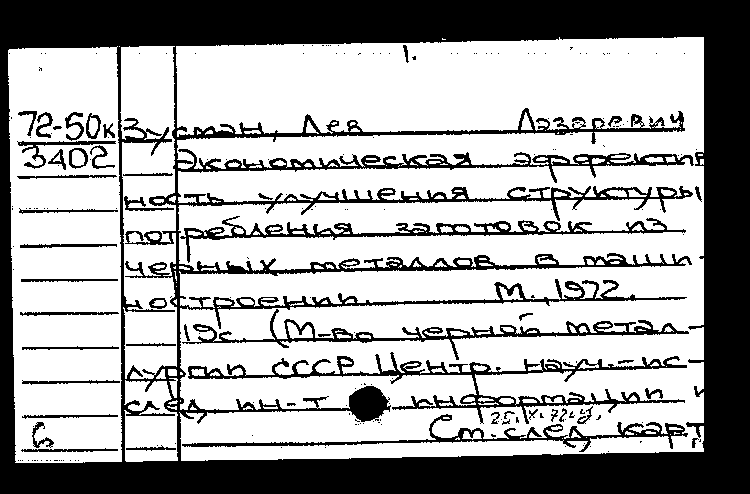 1.
72-50к Зусман, Лев Лазаревич
3402 Экономическая эффектив
ность улучшения структуры
потребления заготовок из
черных металлов в маши-
ностроении. М., 1972.
19с. (М-во черной метал-
лургии СССР. Центр. науч.-ис-
след. ин-т информации и
25.X.72г.
6 См. след. карт